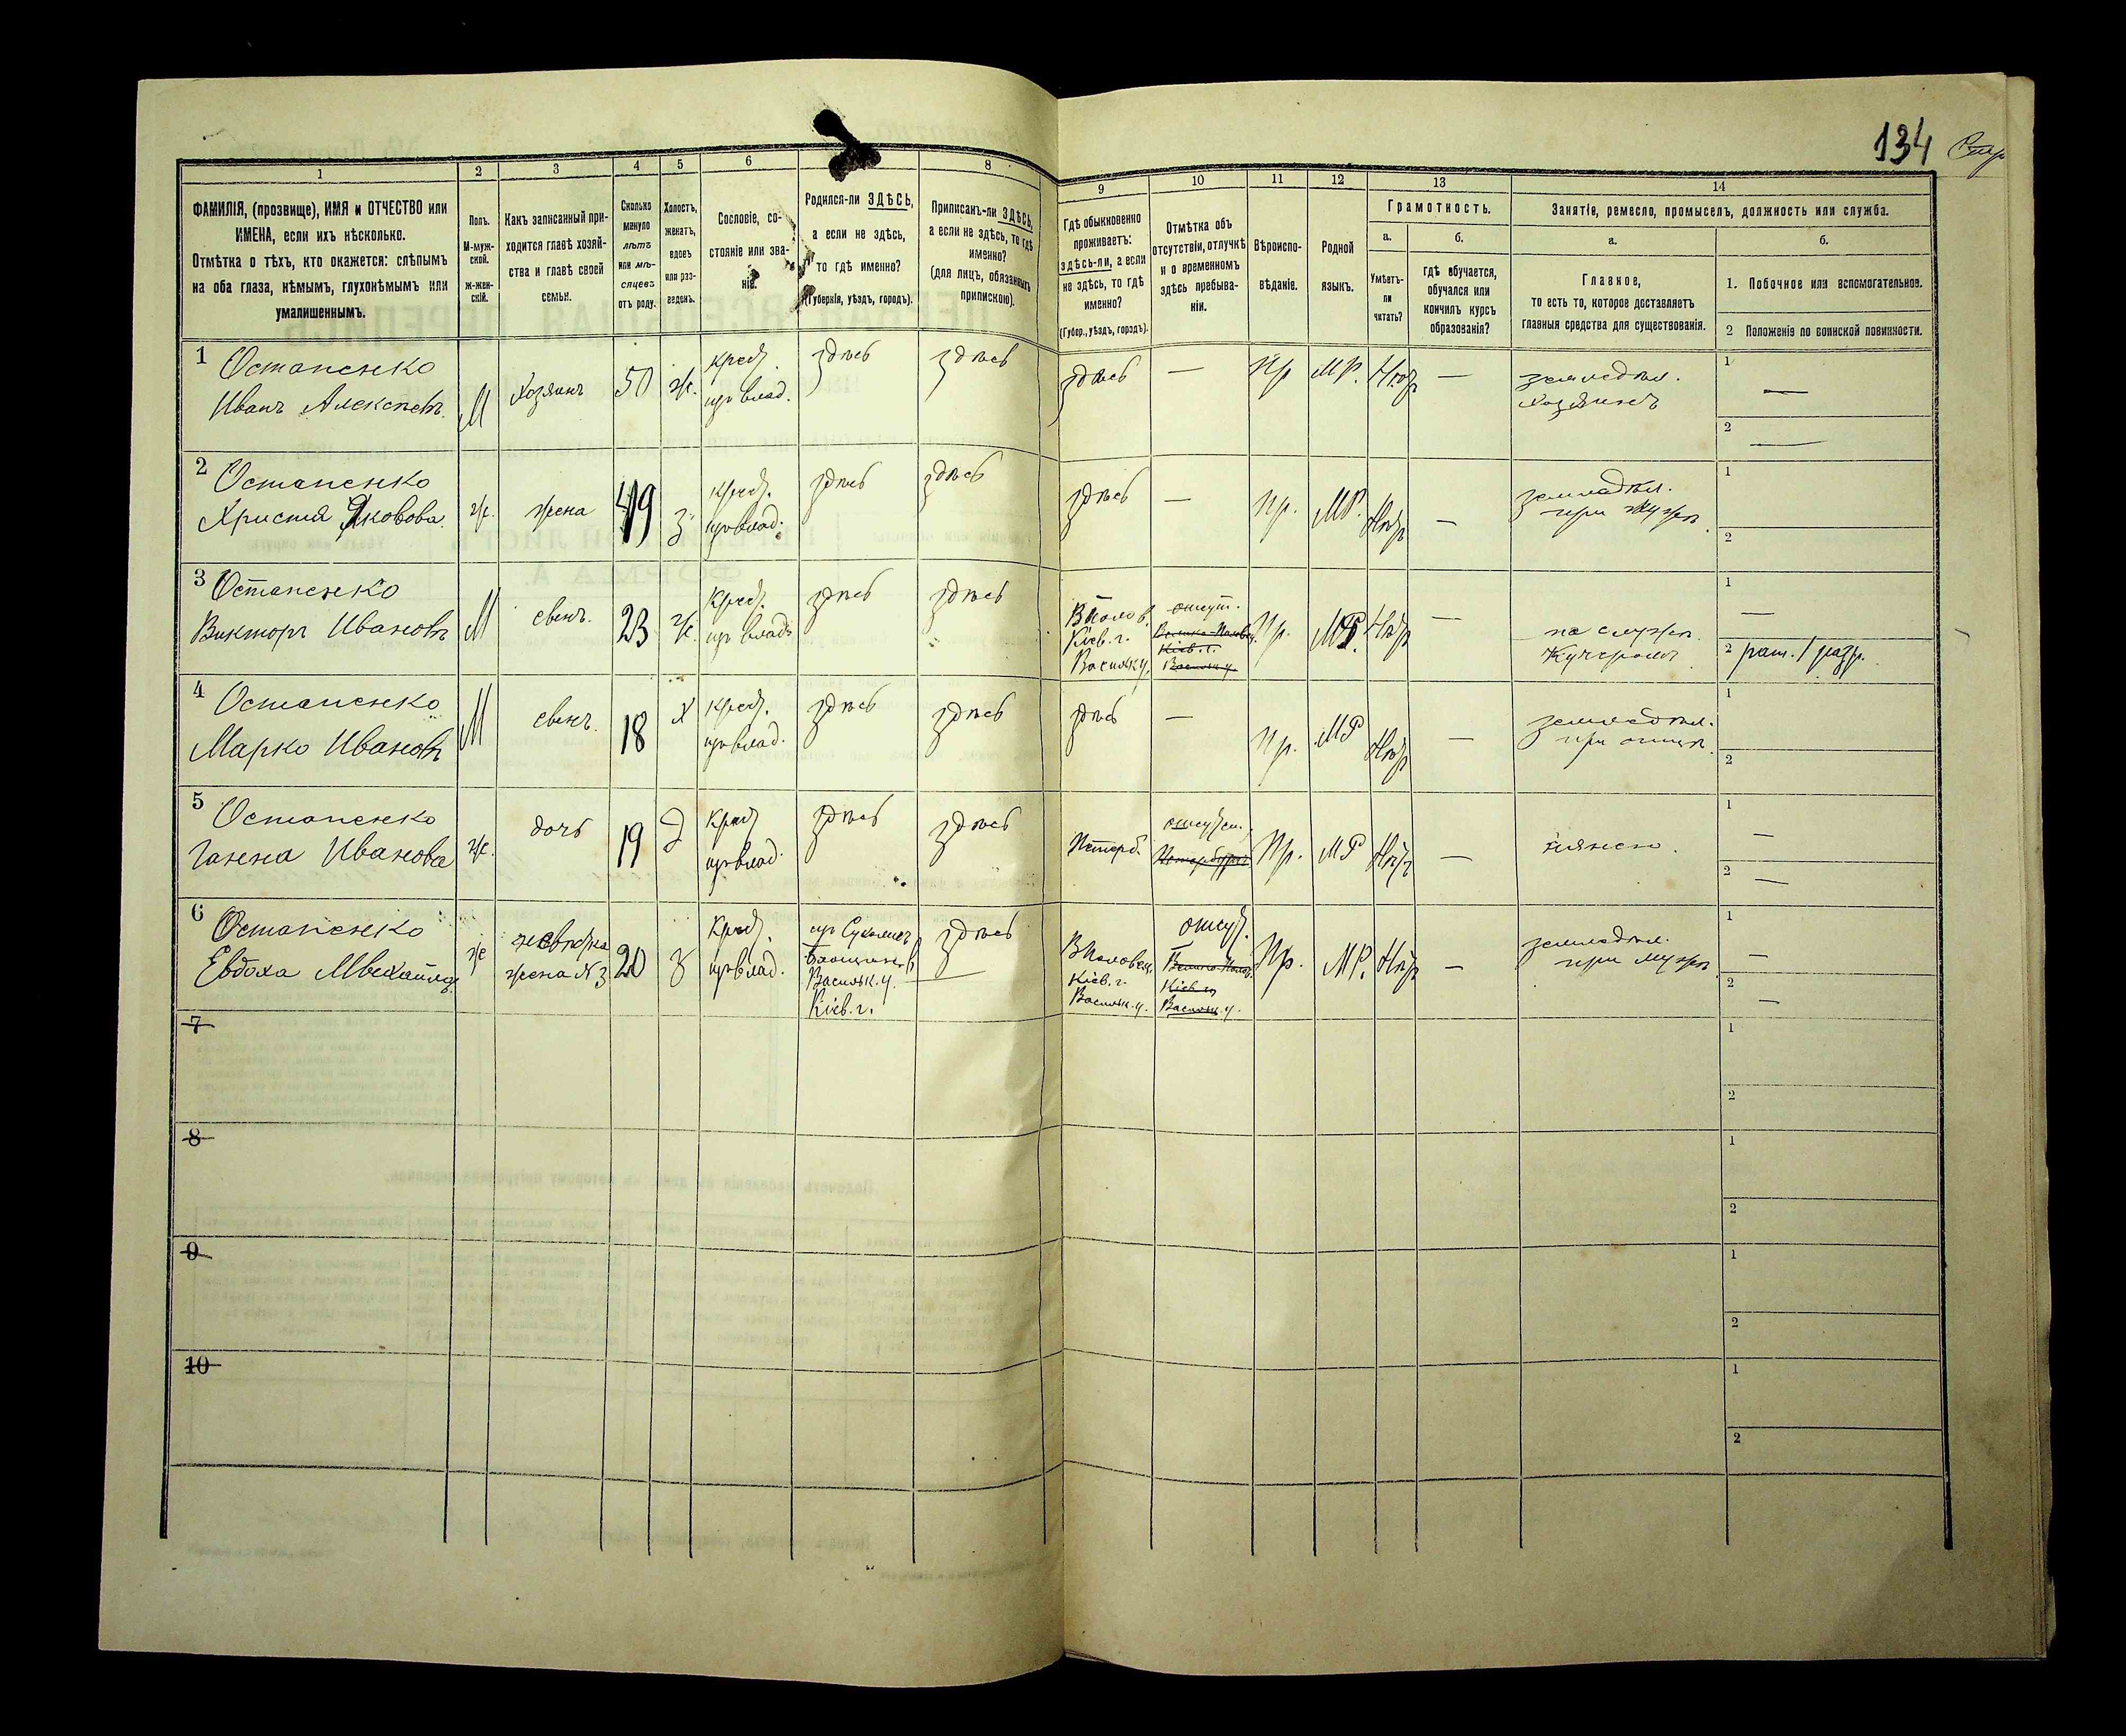 134
1 2 3 4 5 6 8
9 10 11 12 13 14
ФАМИЛІЯ, (прозвище), ИМЯ и ОТЧЕСТВО или
ИМЕНА, если ихъ нѣсколько.
Отмѣтка о тѣхъ, кто окажется: слѣпымъ
на оба глаза, нѣмымъ, глухонѣмымъ или
умалишеннымъ.
Полъ.
М-муж-
ской.
Ж-жен-
скій.
Какъ записанный при-
ходится главѣ хозяй-
ства и главѣ своей
семьи.
Сколько
минуло
лѣтъ
или мѣ-
сяцевъ
отъ роду.
Холостъ,
женатъ,
вдовъ
или раз-
веденъ.
Сословіе, со-
стояніе или зва-
ніе.
Родился-ли ЗДѢСЬ,
а если не здѣсь,
то гдѣ именно?
(Губернія, уѣздъ, городъ).
Приписанъ-ли ЗДѢСЬ,
а если не здѣсь, то гдѣ
именно?
(для лицъ, обязанныхъ
припискою).
Гдѣ обыкновенно
проживаетъ:
здѣсь-ли, а если
не здѣсь, то гдѣ
именно?
(Губер., уѣздъ, городъ).
Отмѣтка объ
отсутствіи, отлучкѣ
и о временномъ
здѣсь пребыва-
ніи.
Вѣроиспо-
вѣданіе.
Родной
языкъ.
Грамотность.
а.
Умѣетъ-
ли
читать?
б.
гдѣ обучается,
обучался или
кончилъ курсъ
образованія?
Занятіе, ремесло, промыселъ, должность или служба.
а.
Главное,
то есть то, которое доставляетъ
главныя средства для существованія.
б.
1. Побочное или вспомогательное.
2 Положеніе по воинской повинности.
1 Остапенко
Иванъ Алексѣевъ
М
Хозяинъ
50
ж.
крест.
здѣсь
здѣсь
здѣсь
—
Пр
МР.
—
земледѣл.
Хозяинъ
1 —
2 —
2 Остапенко
Христя Яковова
ж.
жена
49
з
крест.
здѣсь
здѣсь
здѣсь
—
Пр.
МР.
—
земледѣл.
при мужѣ.
1
2
3 Остапенко
Викторъ Ивановъ
М
сынъ.
23
ж.
крест.
здѣсь
здѣсь
Кіев. г.
Васильк. у.
отсут.
Кіев. г.
Васильк. у.
Пр.
МР.
—
на служб.
Кучеромъ
1 —
2
4 Остапенко
Марко Ивановъ
М
сынъ.
18
Х
крест.
здѣсь
здѣсь
здѣсь
—
Пр.
МР
—
земледѣл.
при отцѣ.
1
2
5 Остапенко
Ганна Иванова
ж.
дочь
19
д
крест
здѣсь
здѣсь
Петерб.
отсутст.
Петербургъ
Пр.
МР
—
нянею.
1 —
2 —
6 Остапенко
Евдоха
ж
невѣстка
жена № 3
20
з
крест.
Васильк. у.
Кіев. г.
здѣсь
Кіев. г.
Васильк. у.
отсут.
Кіев. г.
Васильк. у.
Пр.
МР.
—
земледѣл.
при мужѣ
1 —
2 —
7
1
2
8
1
2
9
1
2
10
1
2